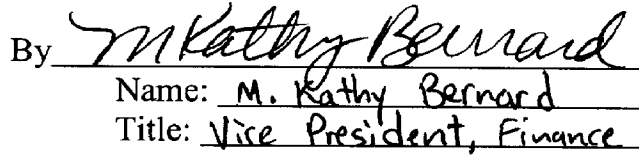 By M Kathy Bernard
Name: M. Kathy Bernard
Title: Vice President, Finance